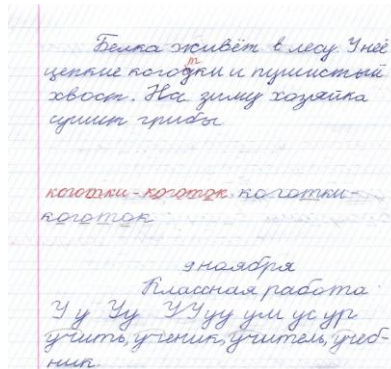 Белка живёт в лесу. У неё
цепкие когодки и пушистый
хвост. На зиму хозяйка
сушит грибы
коготки - коготок коготки -
коготок
9 ноября
Классная работа.
У у Уу УУуу ум ус ур
учить, ученик, учитель, учеб-
ник.